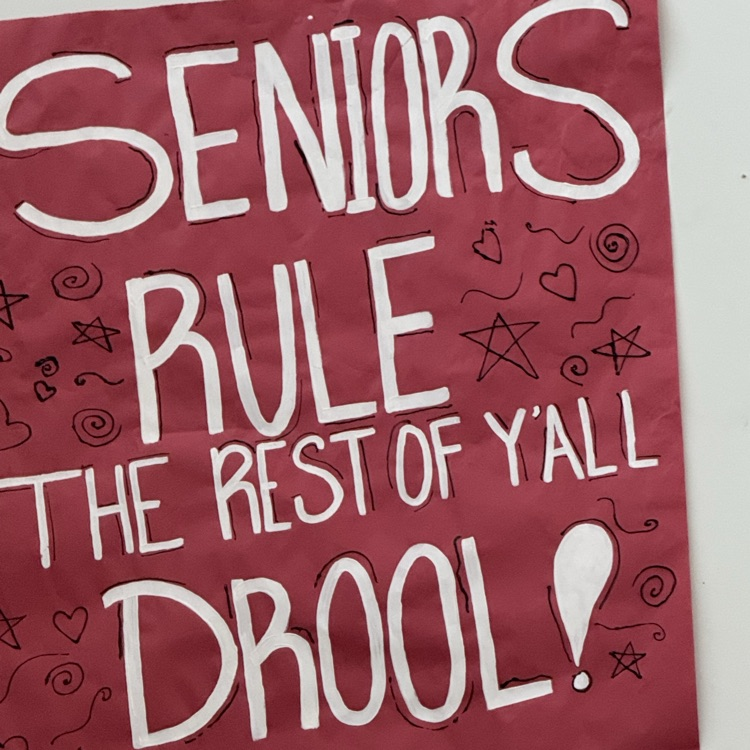 SENIORS
RULE
THE REST OF Y'ALL
DROOL!